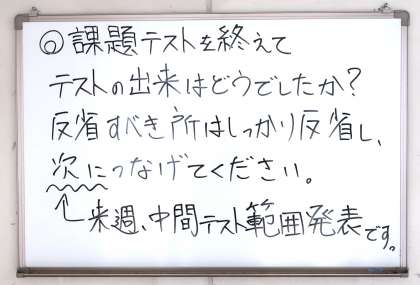 ◎課題テストを終えて
テストの出来はどうでしたか?
反省すべき所はしっかり反省し、
次につなげてください。
↑来週、中間テスト範囲発表です。